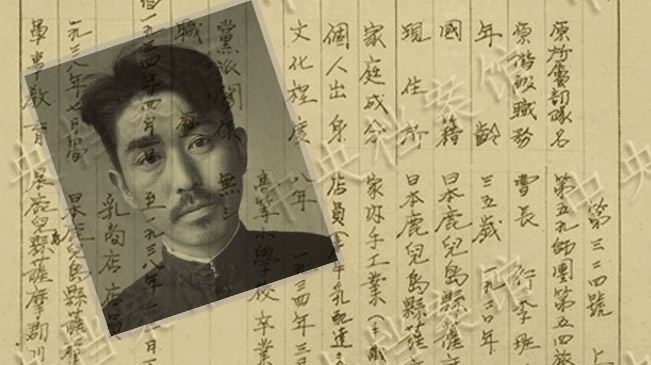 第三二四號 上
原所屬部隊名 第五九師團第五四旅
原階級職務 曹長 行李班
年齡 三五歲 一九二〇年
國籍 日本鹿兒島縣薩
現住所 日本鹿兒島縣薩
家庭成分 手工業(手
個人出身 店員(牛乳配達
文化程度 八年 一九三四年三月
高等小學校卒業
黨派關係 無
職
一九三四年四月一日 至一九三八年二月
店 店員
一九三八年七月 日本鹿兒島縣薩
軍事教育 鹿兒島縣薩摩郡川
中央档案馆